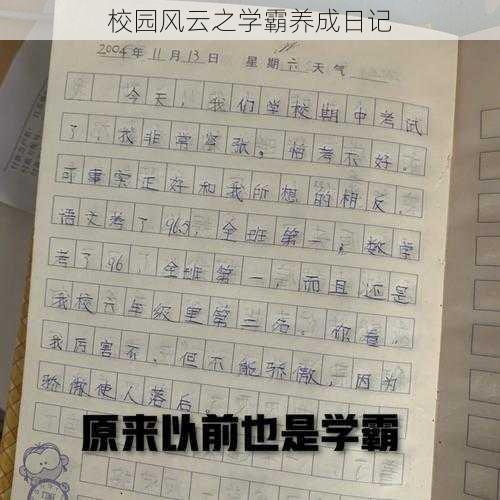 校园风云之学霸养成日记
2004年11月13日 星期六天气
今天,我们学校期中考试
了,我非常紧张。怕考不好。
可事实正好和我所想的相反,
语文考了96.5,全班第一,数学
考了96,全班第一,而且还是
我校六年级里第二名。你看,
我厉害不,但不能骄傲,因为
骄傲使人落后。
原来以前也是学霸